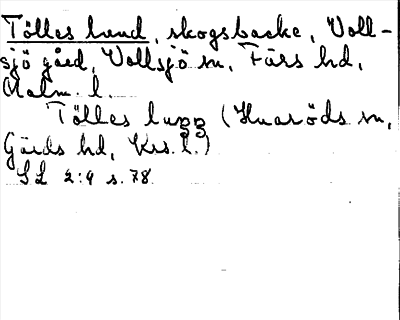 Tölles hund, skogsbacke, Voll-
sjö gård, Vollsjö sn, Färs hd,
Malm. l.
Tölles lugg (Huaröds sn,
Gärds hd, Krs. l.)
SL 2:4 s. 78